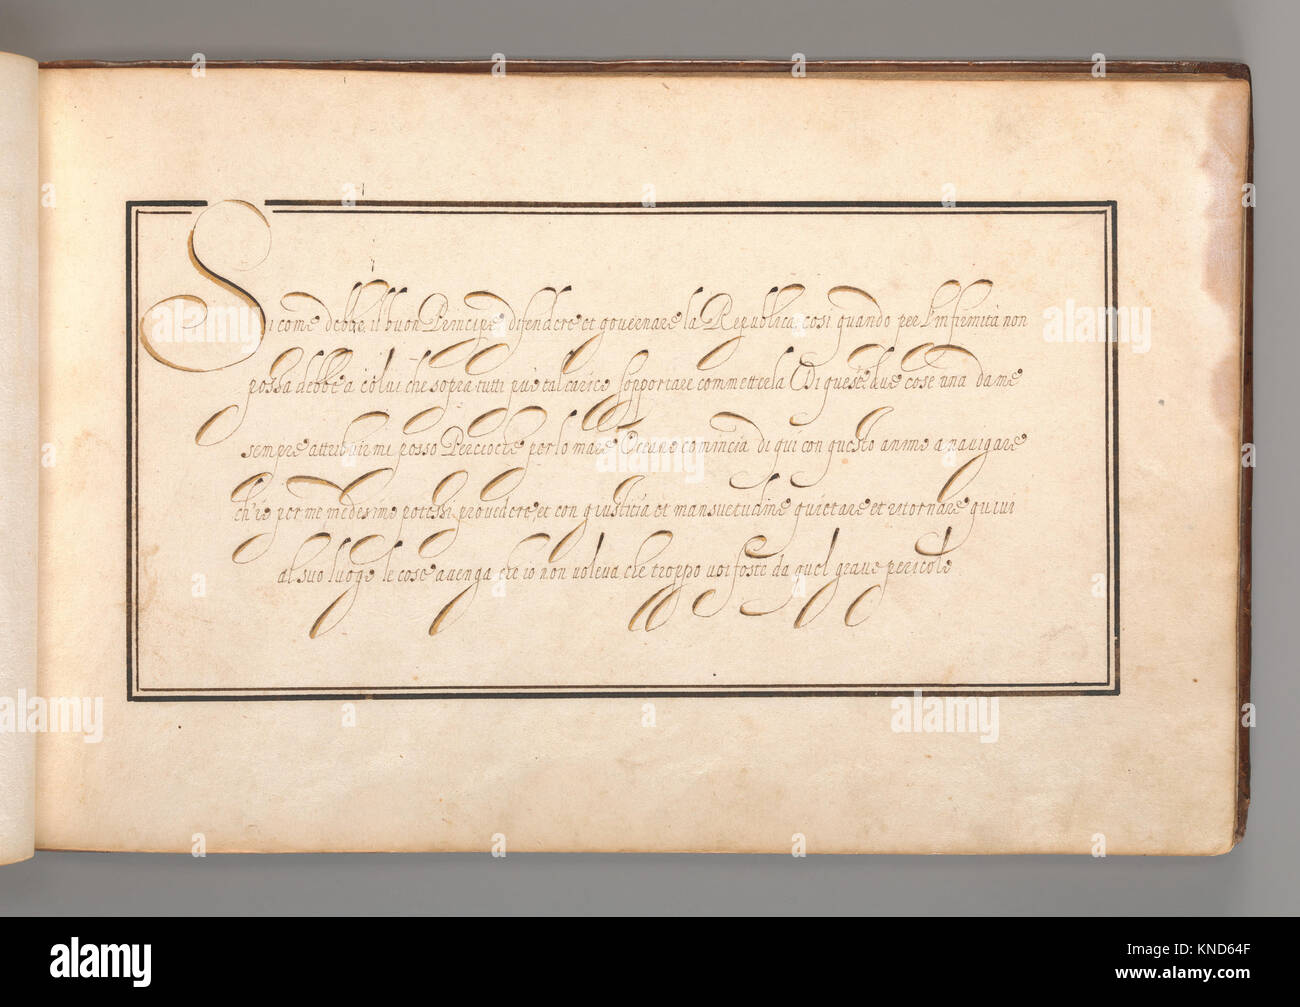 Si come debbe il buon Principe difendere et governare la Republica, cosi quando per l'infirmità non
possa debbe a colui che sopra tutti può tal carico sopportare commetterla Di queste due cose una da me
sempre attribuirmi posso Percioche per lo mare Oceano comincia di qui con questo animo a navigare
ch'io per me medesimo potessi provedere, et con giustitia et mansuetudine quietare et ritornare quivi
al suo luogo le cose avenga che io non voleva che troppo voi foste da quel grave pericolo
alamy
Image ID: KND64F
www.alamy.com